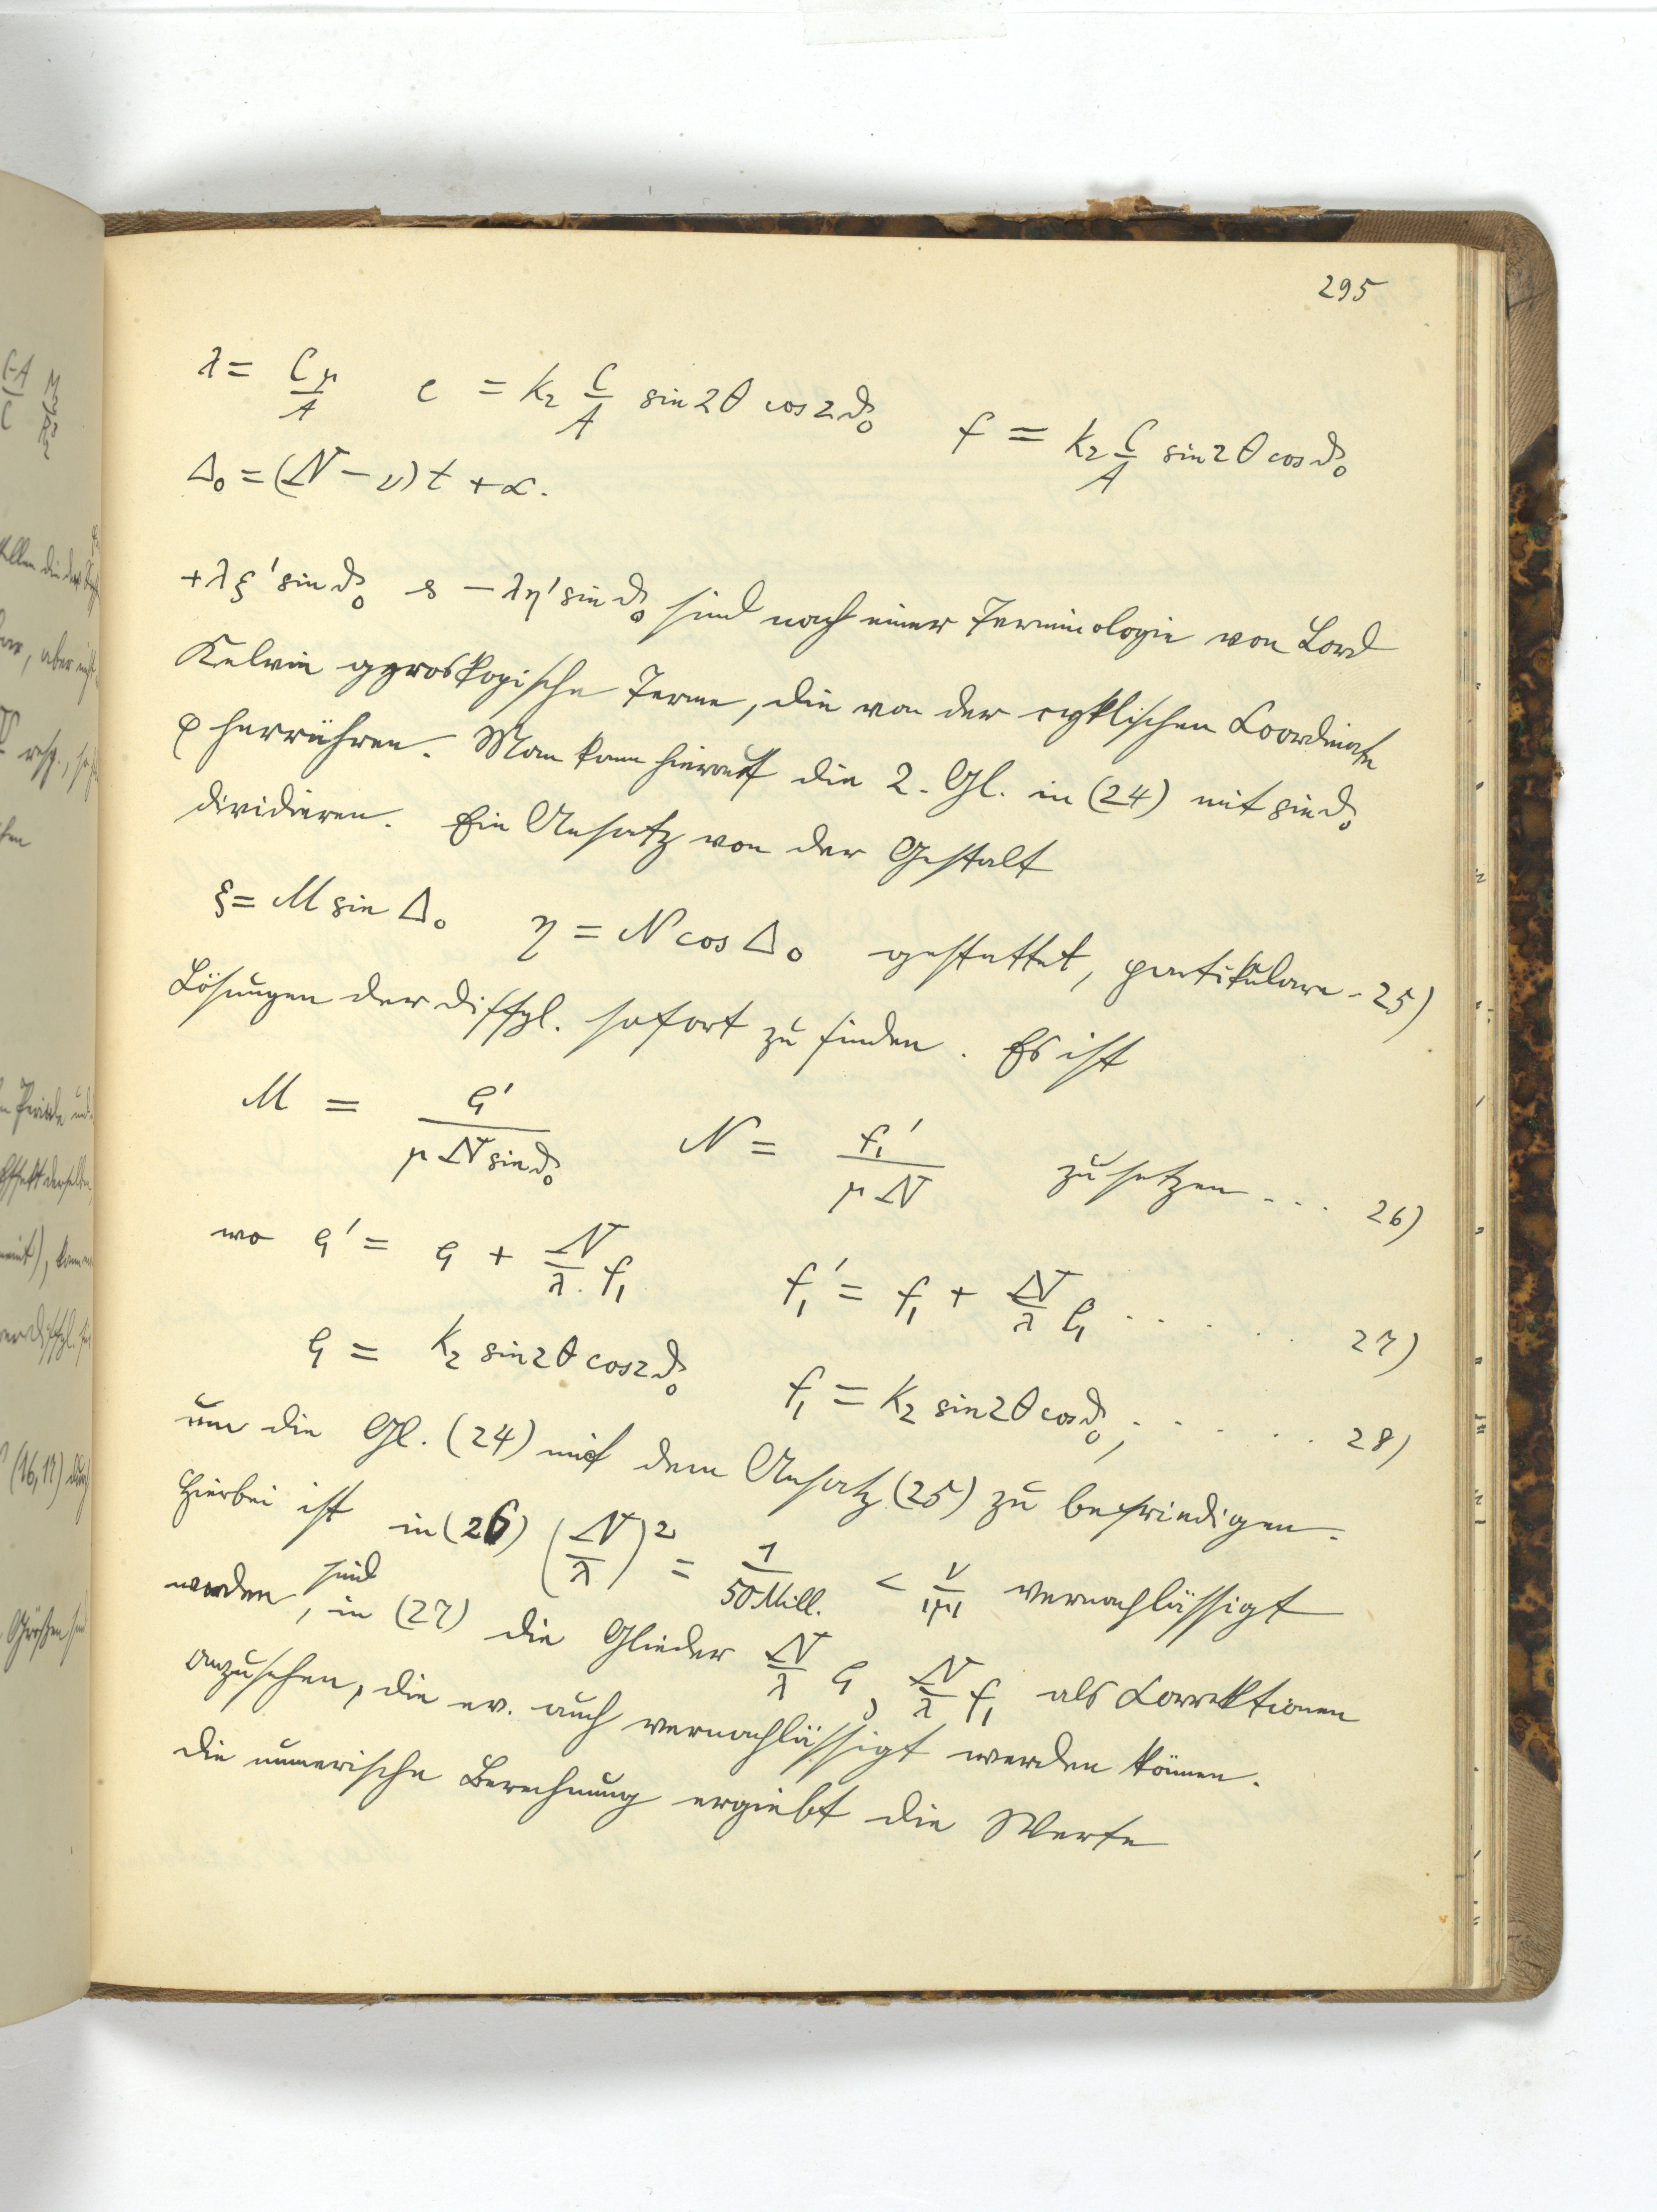 295
λ = Cμ/A   e = k₂ C/A sin 2θ cos 2ϑ₀   f = k₂ C/A sin 2θ cos ϑ₀
Δ₀ = (N − ν) t + α.
+λξ' sin ϑ₀ & −λη' sin ϑ₀ sind nach einer Terminologie von Lord
Kelvin gyroskopische Terme, die von der cyklischen Coordinate
φ herrühren. Man kann hierauf die 2. Gl. in (24) mit sin ϑ₀
dividieren. Ein Ansatz von der Gestalt
ξ = M sin Δ₀   η = N cos Δ₀ gestattet, partikulare - 25)
Lösungen der Diffgl. sofort zu finden. Es ist
M = e₁'/(μ N sin ϑ₀)   N = f₁'/(μ N)   zu setzen ... 26)
wo e₁' = e₁ + N/λ f₁   f₁' = f₁ + N/λ e₁ ...... 27)
e₁ = k₂ sin 2θ cos 2ϑ₀   f₁ = k₂ sin 2θ cos ϑ₀, ..... 28)
um die Gl. (24) mit dem Ansatz (25) zu befriedigen.
Hierbei ist in (26) (N/λ)² = 1/50 Mill. < ν/|μ| vernachlässigt
worden, sind in (27) die Glieder N/λ e₁, N/λ f₁ als Correktionen
anzusehen, die ev. auch vernachlässigt werden können.
Die numerische Berechnung ergiebt die Werte